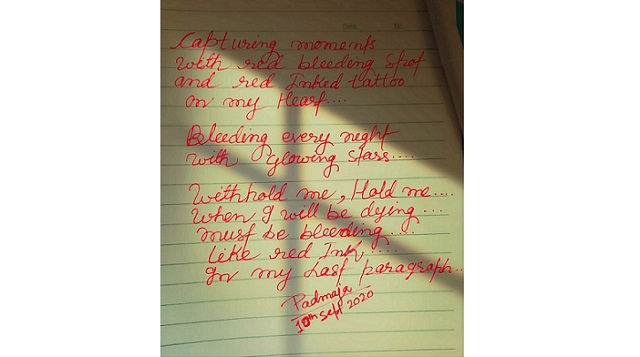 Date. No.
Capturing moments
with red bleeding spot
and red Inked tattoo
in my Heart....
Bleeding every night
with glowing stars....
Withhold me, Hold me....
When I will be dying....
must be bleeding....
like red Ink,....
In my Last paragraph..
Padmaja
10th Sept 2020